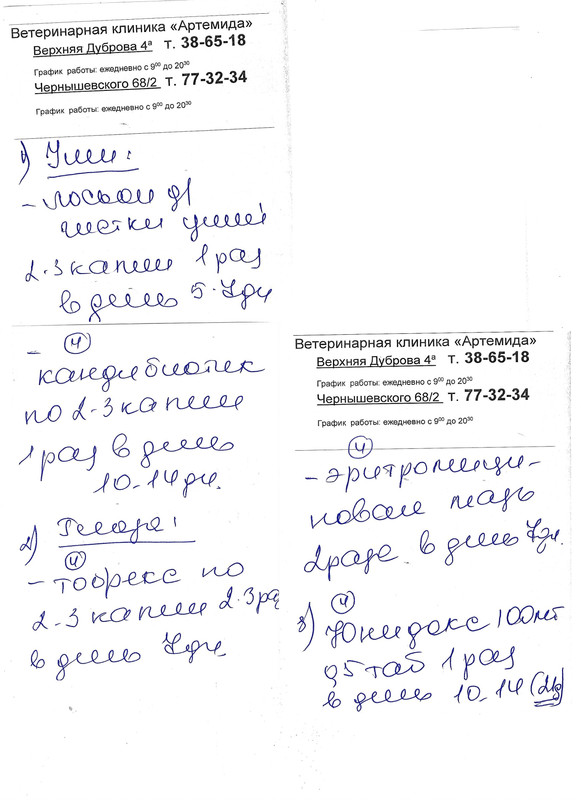 Ветеринарная клиника «Артемида»
Верхняя Дуброва 4ª т. 38-65-18
График работы: ежедневно с 9⁰⁰ до 20³⁰
Чернышевского 68/2 т. 77-32-34
График работы: ежедневно с 9⁰⁰ до 20³⁰
1) Уши:
- лосьон дл
чистки ушей
2-3 капли 1 раз
в день 5-7дн
- Ч
кандибиотик
по 2-3 капли
1 раз в день
10-14дн.
2) Глаза:
Ч
- тобрекс по
2-3 капли 2-3 ра
в день 7дн.
Ветеринарная клиника «Артемида»
Верхняя Дуброва 4ª т. 38-65-18
График работы: ежедневно с 9⁰⁰ до 20³⁰
Чернышевского 68/2 т. 77-32-34
График работы: ежедневно с 9⁰⁰ до 20³⁰
Ч
- эритромици-
новая мазь
2 раза в день 7дн.
Ч
3) Юнидокс 100мг
0,5 таб 1 раз
в день 10-14